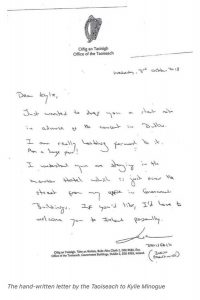 Oifig an Taoisigh
Office of the Taoiseach
Dear Kylie,
Just wanted to drop you a short note
in advance of the concert in Dublin.
I am really looking forward to it.
Am a huge fan!
I understand you are staying in the
Merrion Hotel which is just over the
street from my office in Government
Buildings. If you'd like, I'd love to
welcome you to Ireland personally.
Leo
Oifig an Taoisigh, Tithe an Rialtais, Baile Átha Cliath 2
Office of the Taoiseach, Government Buildings, Dublin 2
The hand-written letter by the Taoiseach to Kylie Minogue